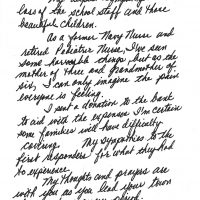 loss of the school staff and those
beautiful children.
As a former Navy Nurse and
retired Pediatric Nurse, I've seen
some horrible things, but as the
mother of three and grandmother of
six, I can only imagine the pain
everyone is feeling.
I sent a donation to the bank
to aid with the expenses I'm certain
some families will have difficulty
covering. My sympathies to the
first responders for what they had
to experience.
My thoughts and prayers are
with you as you lead your town